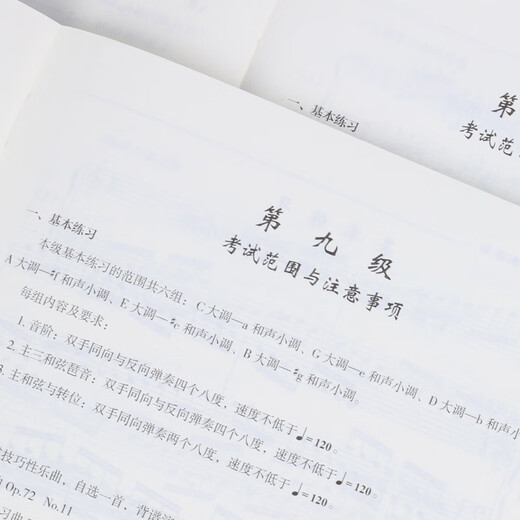 第
一、基本练习
考试范
第九级
考试范围与注意事项
一、基本练习
本级基本练习的范围共六组：C大调—a和声小调、G大调—e和声小调、D大调—b和声小
A大调—♯f和声小调、E大调—♯c和声小调、B大调—♯g和声小调。
每组内容及要求：
1. 音阶：双手同向与反向弹奏四个八度，速度不低于♩=120。
2. 主三和弦琶音：双手同向与反向弹奏四个八度，速度不低于♩=120。
3. 主和弦与转位：双手同向弹奏两个八度，速度不低于♩=120。
技巧性乐曲，自选一首，背谱演
Op.72 No.11
习曲